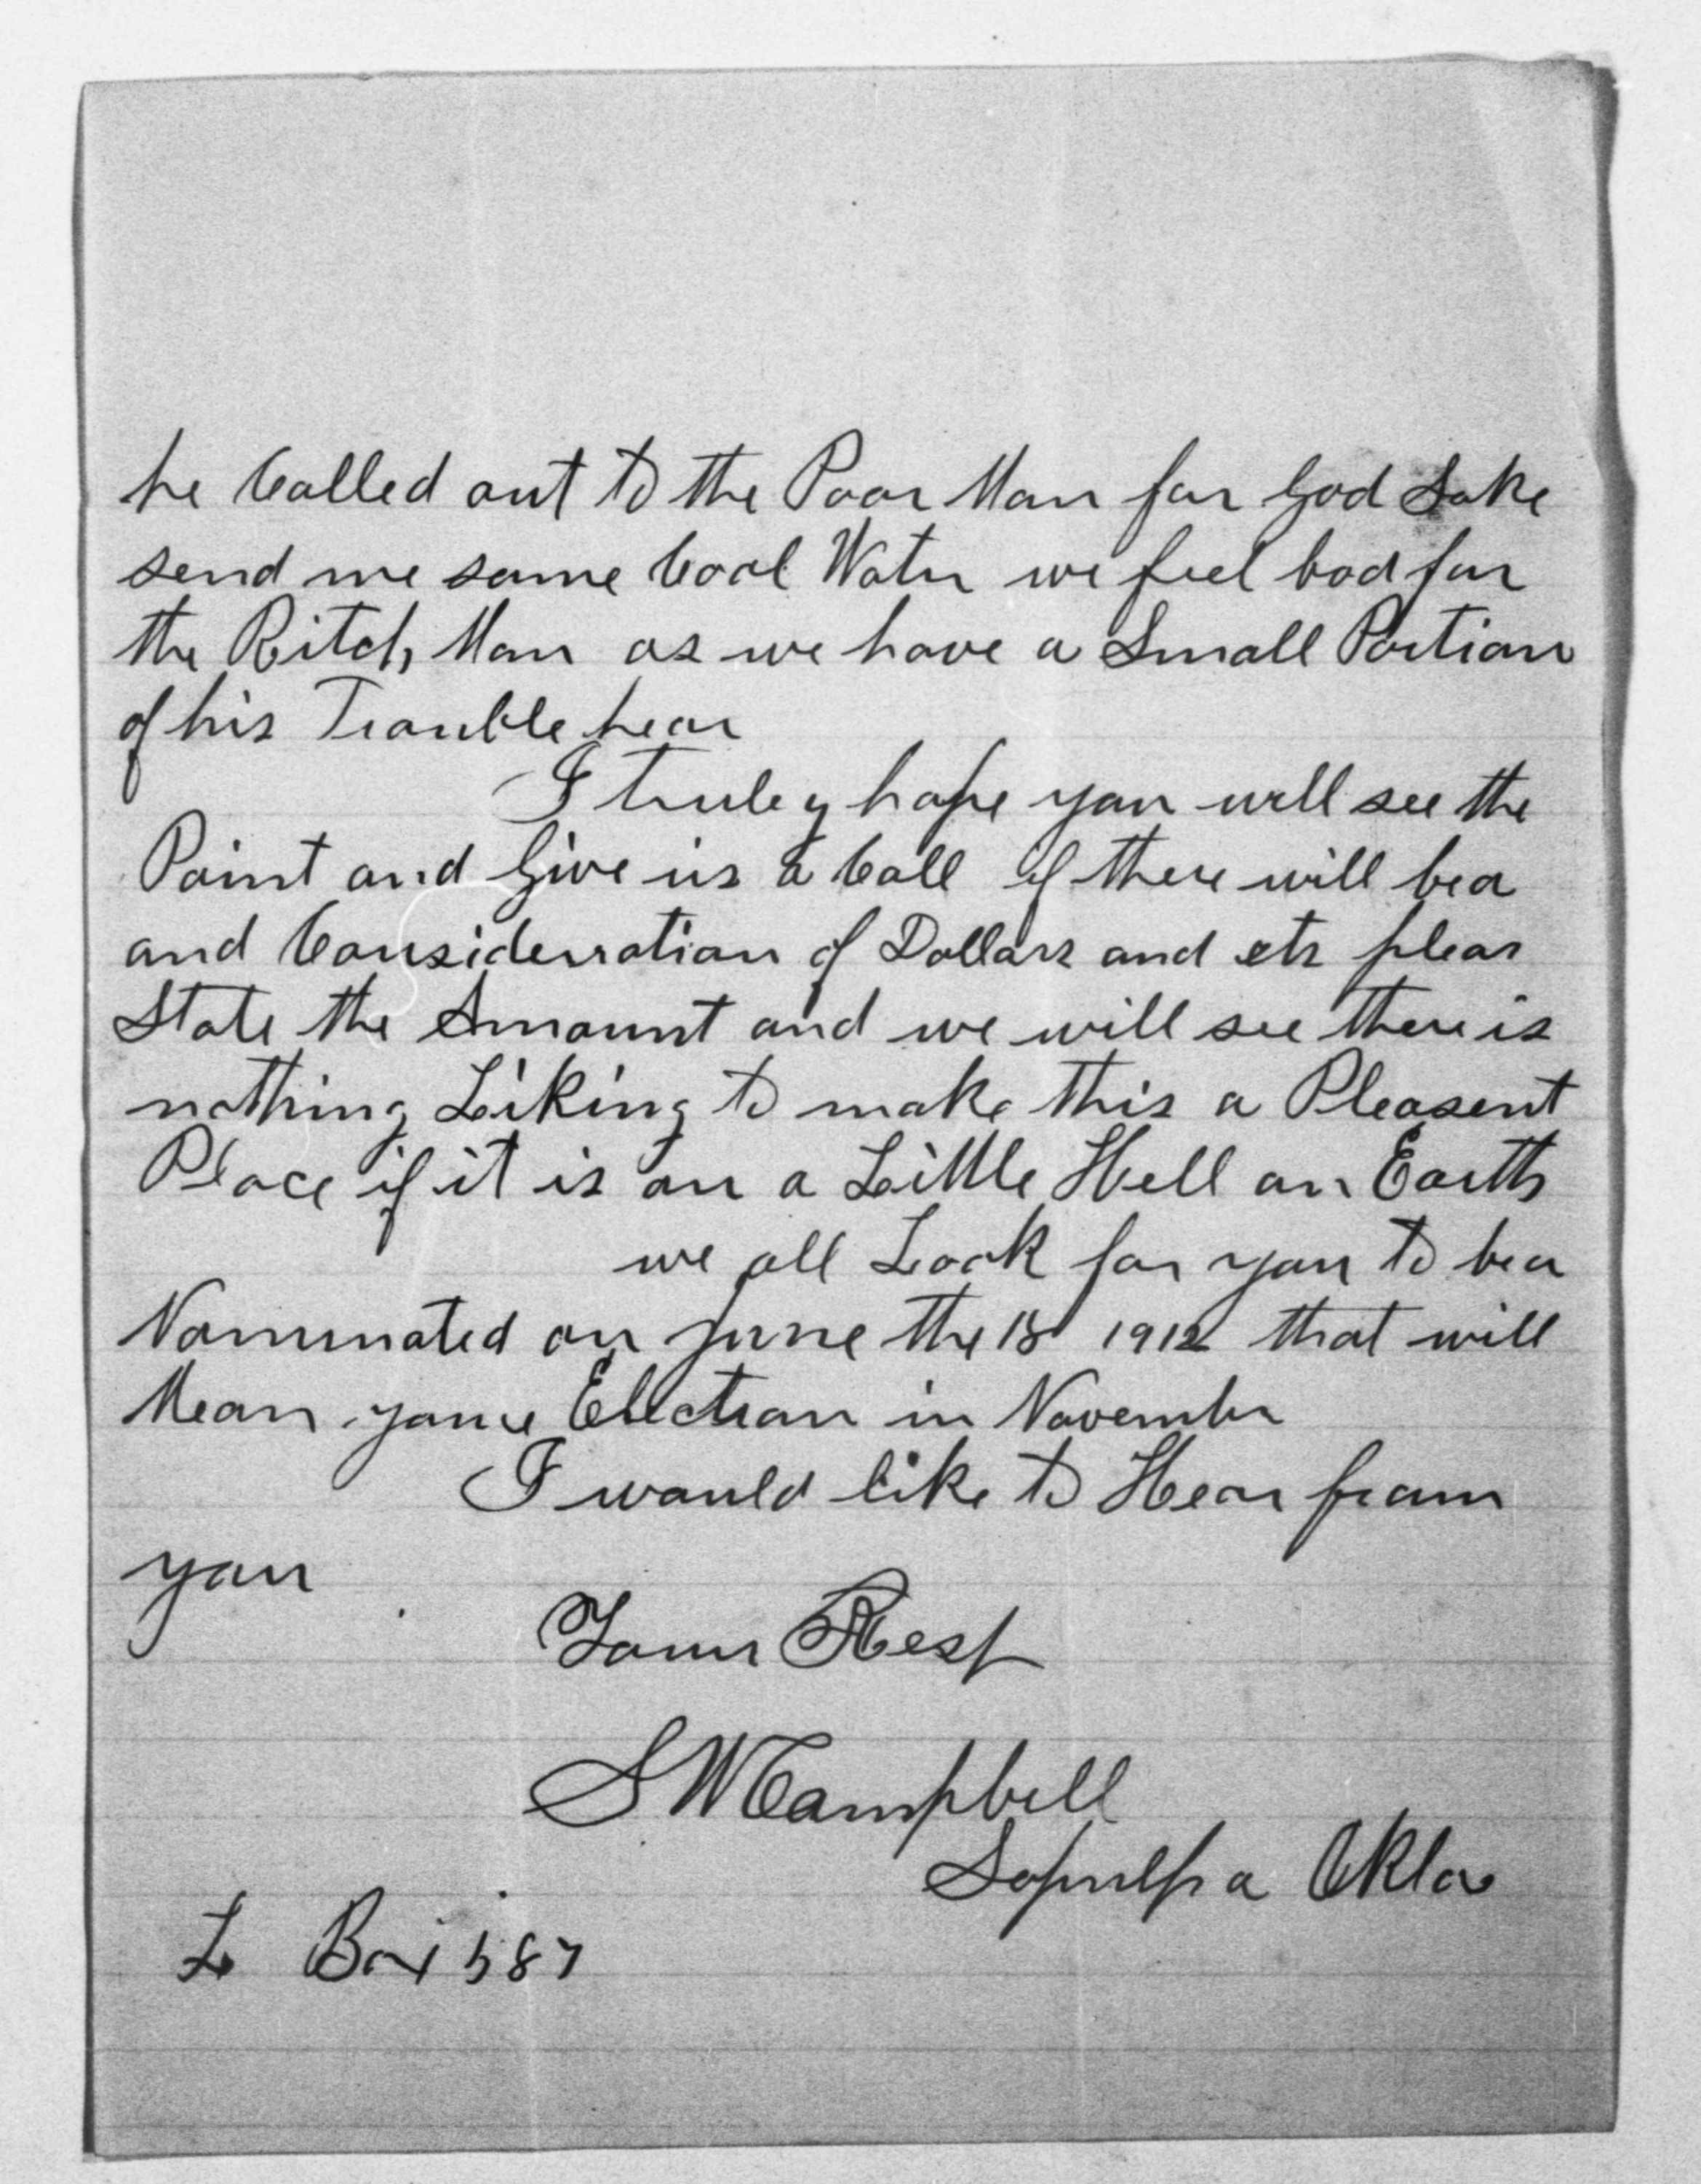 he Called out to the Poor Man for God Sake
send me some Cool Water we feel bad for
the Ritch Man as we have a Small Portion
of his Trouble hear
I truley hope you will see the
Point and Give us a Call if there will be a
and Considerration of Dollars and ets pleas
State the Amount and we will see there is
nothing Liking to make this a Pleasent
Place if it is on a Little Hell on Earth
we all Look for you to be a
Nominated on June the 18 1912 that will
Mean youre Election in November
I would like to Hear from
you
Your Resp
S W Campbell
Sapulpa Okla
L Box 587